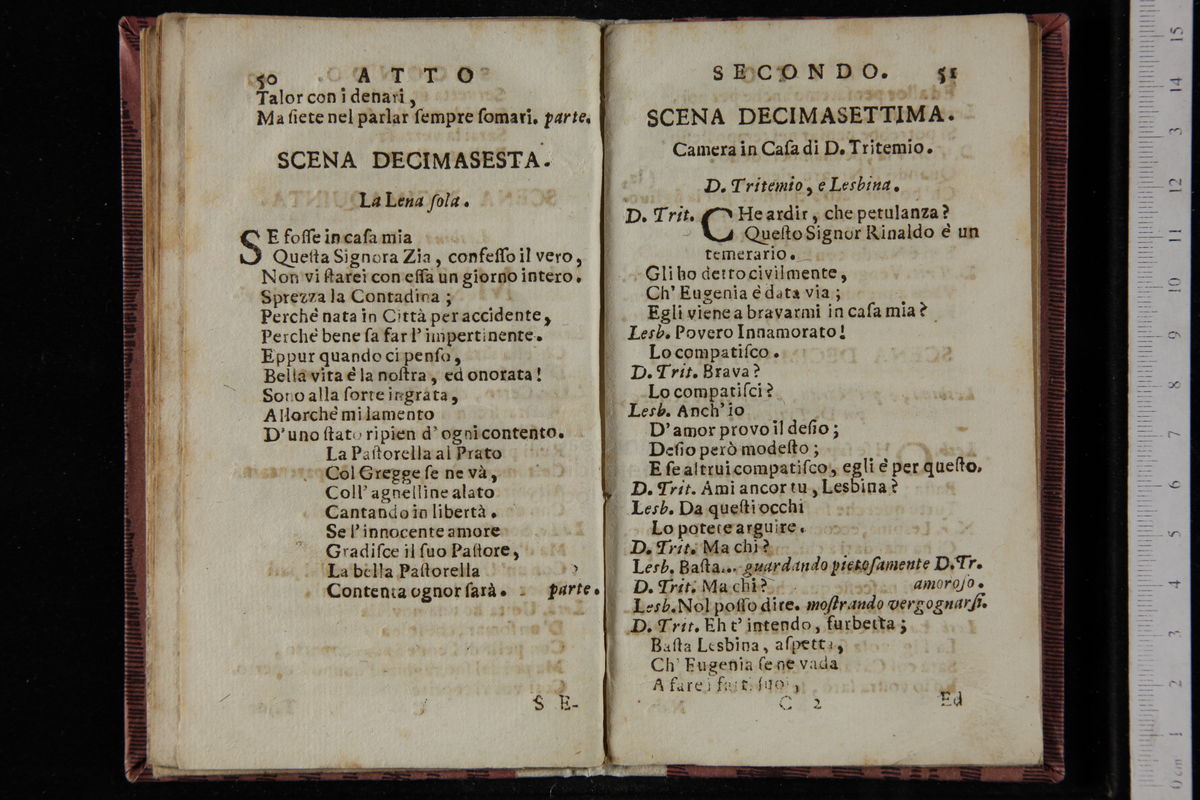 50 ATTO
Talor con i denari,
Ma ſiete nel parlar ſempre ſomari. parte.
SCENA DECIMASESTA.
La Lena ſola.
SE foſſe in caſa mia
Queſta Signora Zia, confeſſo il vero,
Non vi ſtarei con eſſa un giorno intero.
Sprezza la Contadina;
Perchè nata in Città per accidente,
Perchè bene ſa far l'impertinente.
Eppur quando ci penſo,
Bella vita è la noſtra, ed onorata!
Sono alla ſorte ingrata,
Allorchè mi lamento
D'uno ſtato ripien d'ogni contento.
La Paſtorella al Prato
Col Gregge ſe ne và,
Coll'agnelline alato
Cantando in libertà.
Se l'innocente amore
Gradiſce il ſuo Paſtore,
La bella Paſtorella
Contenta ognor ſarà. parte.
S E-
SECONDO. 51
SCENA DECIMASETTIMA.
Camera in Caſa di D. Tritemio.
D. Tritemio, e Lesbina.
D. Trit. CHe ardir, che petulanza?
Queſto Signor Rinaldo è un
temerario.
Gli ho detto civilmente,
Ch' Eugenia è data via;
Egli viene a bravarmi in caſa mia?
Lesb. Povero Innamorato!
Lo compatiſco.
D. Trit. Brava?
Lo compatiſci?
Lesb. Anch'io
D'amor provo il deſio;
Deſio però modeſto;
E ſe altrui compatiſco, egli è per queſto.
D. Trit. Ami ancor tu, Lesbina?
Lesb. Da queſti occhi
Lo potete arguire.
D. Trit. Ma chi?
Lesb. Baſta... guardando pietoſamente D. Tr.
D. Trit. Ma chi? amoroſo.
Lesb. Nol poſſo dire. moſtrando vergognarſi.
D. Trit. Eh t'intendo, furbetta;
Baſta Lesbina, aſpetta,
Ch' Eugenia ſe ne vada
A fare i fatti ſuoi,
C 2 Ed